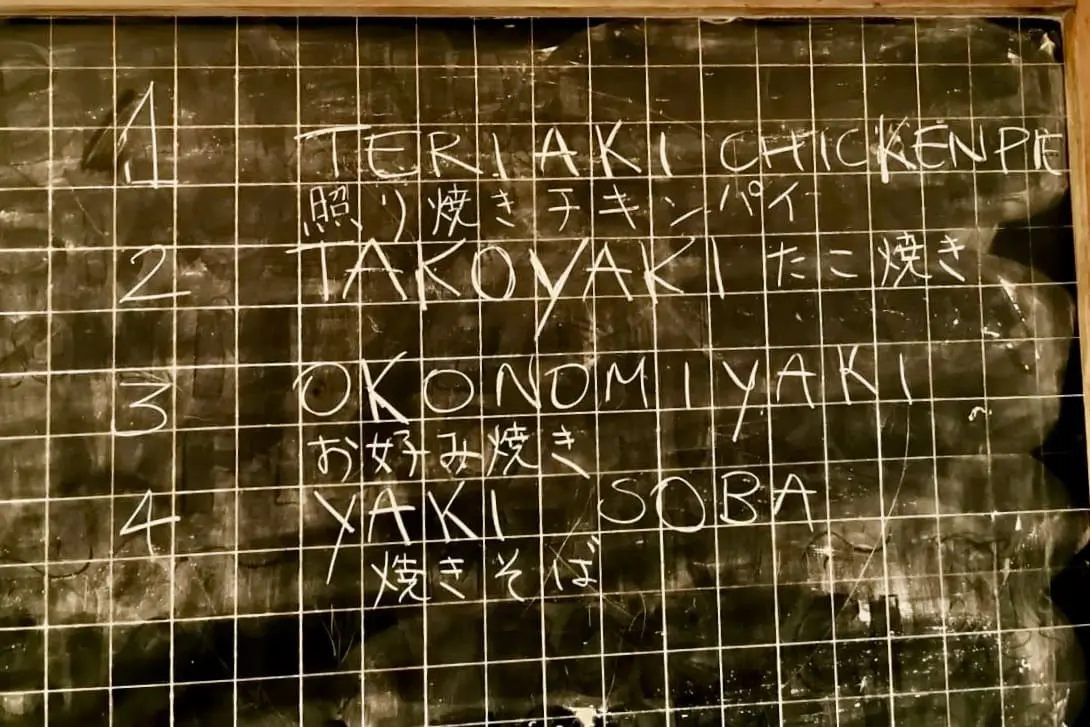 1 TERIAKI CHICKENPIE
照り焼きチキンパイ
2 TAKOYAKI たこ焼き
3 OKONOMIYAKI
お好み焼き
4 YAKI SOBA
焼きそば